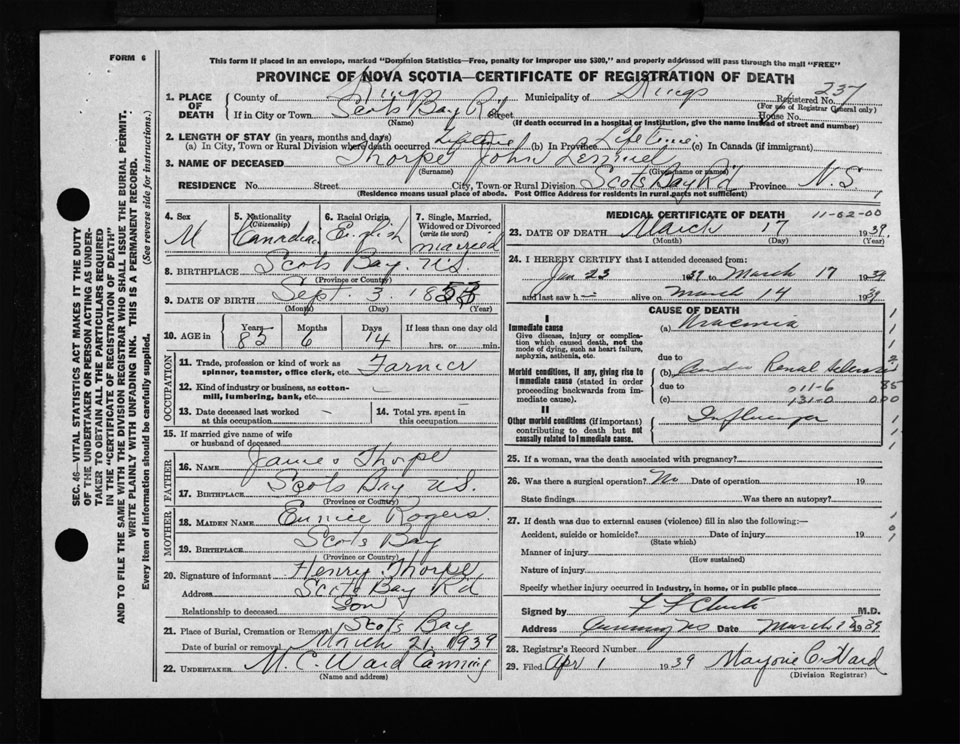 FORM 6
This form if placed in an envelope, marked "Dominion Statistics—Free, penalty for improper use $300," and properly addressed will pass through the mail "FREE"
PROVINCE OF NOVA SCOTIA—CERTIFICATE OF REGISTRATION OF DEATH
1. PLACE OF DEATH
County of Kings Municipality of Kings Registered No. 237
(For use of Registrar General only)
If in City or Town Scots Bay Rd Street House No.
(Name) (If death occurred in a hospital or institution, give the name instead of street and number)
2. LENGTH OF STAY (in years, months and days)
(a) In City, Town or Rural Division where death occurred Lifetime (b) In Province Lifetime (c) In Canada (if immigrant)
3. NAME OF DECEASED Thorpe John Lemuel
(Surname) (Given name or names)
RESIDENCE No. Street City, Town or Rural Division Scots Bay Rd Province N.S.
(Residence means usual place of abode. Post Office Address for residents in rural parts not sufficient)
1
4. Sex
M
5. Nationality (Citizenship)
Canadian
6. Racial Origin
English
7. Single, Married, Widowed or Divorced (write the word)
Married
8. BIRTHPLACE Scots Bay. N.S.
(Province or Country)
9. DATE OF BIRTH Sept. 3 18
(Month) (Day) (Year)
10. AGE in
Years Months Days If less than one day old
82 6 14 hrs. or min.
OCCUPATION
11. Trade, profession or kind of work as spinner, teamster, office clerk, etc. Farmer
12. Kind of industry or business, as cotton-mill, lumbering, bank, etc.
13. Date deceased last worked at this occupation
14. Total yrs. spent in this occupation
15. If married give name of wife or husband of deceased
FATHER
16. NAME James Thorpe
17. BIRTHPLACE Scots Bay N.S.
(Province or Country)
MOTHER
18. MAIDEN NAME Eunice Rogers.
19. BIRTHPLACE Scots Bay
(Province or Country)
20. Signature of informant Henry Thorpe
Address Scots Bay Rd
Relationship to deceased Son
21. Place of Burial, Cremation or Removal Scots Bay
Date of burial or removal March 21, 1939
22. UNDERTAKER M. C. Ward Canning
(Name and address)
MEDICAL CERTIFICATE OF DEATH
11-02-00
23. DATE OF DEATH March 17 1939.
(Month) (Day) (Year)
24. I HEREBY CERTIFY that I attended deceased from:
Jan 23 1939 to March 17 1939
and last saw h alive on March 14 1939
CAUSE OF DEATH
I
Immediate cause
Give disease, injury or complication which caused death, not the mode of dying, such as heart failure, asphyxia, asthenia, etc.
(a) Uraemia
due to
Morbid conditions, if any, giving rise to immediate cause (stated in order proceeding backwards from immediate cause).
(b) Cardio Renal Sclerosis
due to 011-6 85
(c) 131-0 000
II
Other morbid conditions (if important) contributing to death but not causally related to immediate cause.
Influenza
25. If a woman, was the death associated with pregnancy?
26. Was there a surgical operation? No Date of operation 19
State findings Was there an autopsy?
27. If death was due to external causes (violence) fill in also the following:—
Accident, suicide or homicide? Date of injury 19
(State which)
Manner of injury
(How sustained)
Nature of injury
Specify whether injury occurred in industry, in home, or in public place
Signed by M.D.
Address Canning NS Date March 1939
28. Registrar's Record Number
29. Filed Apr 1 1939 Marjorie C. Ward
(Division Registrar)
SEC. 46—VITAL STATISTICS ACT MAKES IT THE DUTY
OF THE UNDERTAKER OR PERSON ACTING AS UNDER-
TAKER TO OBTAIN ALL THE PARTICULARS REQUIRED
IN THE "CERTIFICATE OF REGISTRATION OF DEATH"
AND TO FILE THE SAME WITH THE DIVISION REGISTRAR WHO SHALL ISSUE THE BURIAL PERMIT.
WRITE PLAINLY WITH UNFADING INK. THIS IS A PERMANENT RECORD.
Every item of information should be carefully supplied. (See reverse side for instructions.)